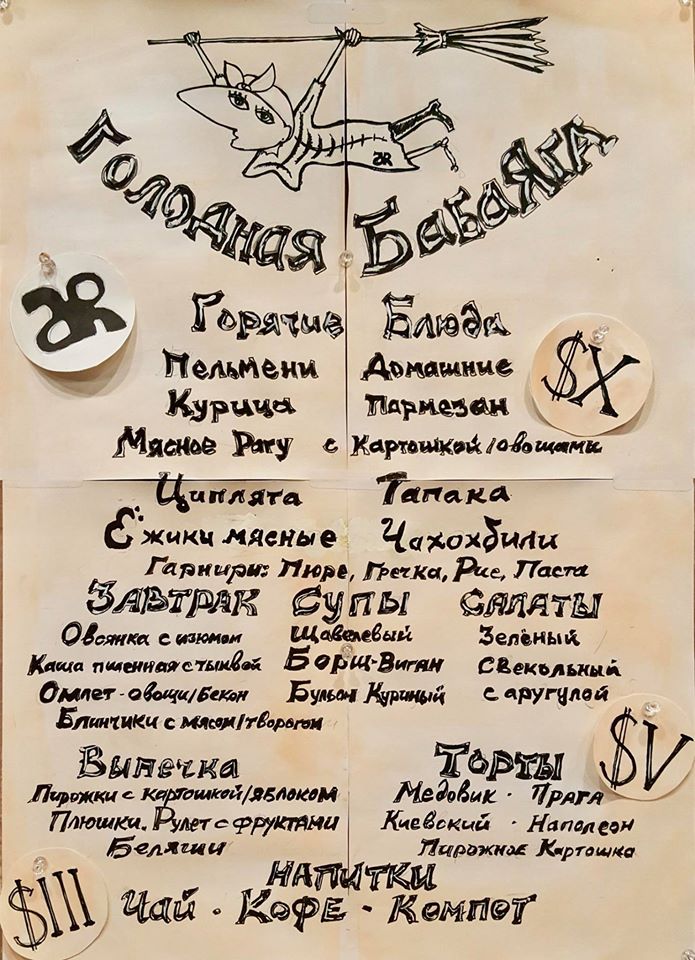 ЯR
Голодная БабаЯга
Горячие Блюда
Пельмени Домашние
Курица Пармезан
$X
Мясное Рагу с Картошкой/овощами
Циплята Тапака
Ёжики мясные Чахохбили
Гарниры: Пюре, Гречка, Рис, Паста
ЗАВТРАК СУПЫ САЛАТЫ
Овсянка с изюмом Щавелевый Зелёный
Каша пшенная с тыквой Борщ-Виган Свекольный
Омлет-овощи/Бекон Бульон Куриный с аругулой
Блинчики с мясом/творогом
$V
Выпечка ТОРТЫ
Пирожки с картошкой/яблоком Медовик · Прага
Плюшки. Рулет с фруктами Киевский · Наполеон
Беляшии Пирожное Картошка
НАПИТКИ
$III
Чай · Кофе · Компот